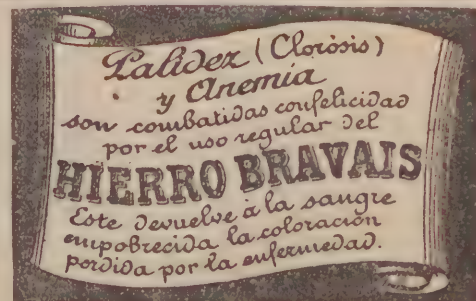 Palidez (Clorósis)
y Anemia
son combatidas con felicidad
por el uso regular del
HIERRO BRAVAIS
Este devuelve à la sangre
empobrecida la coloración
perdida por la enfermedad.